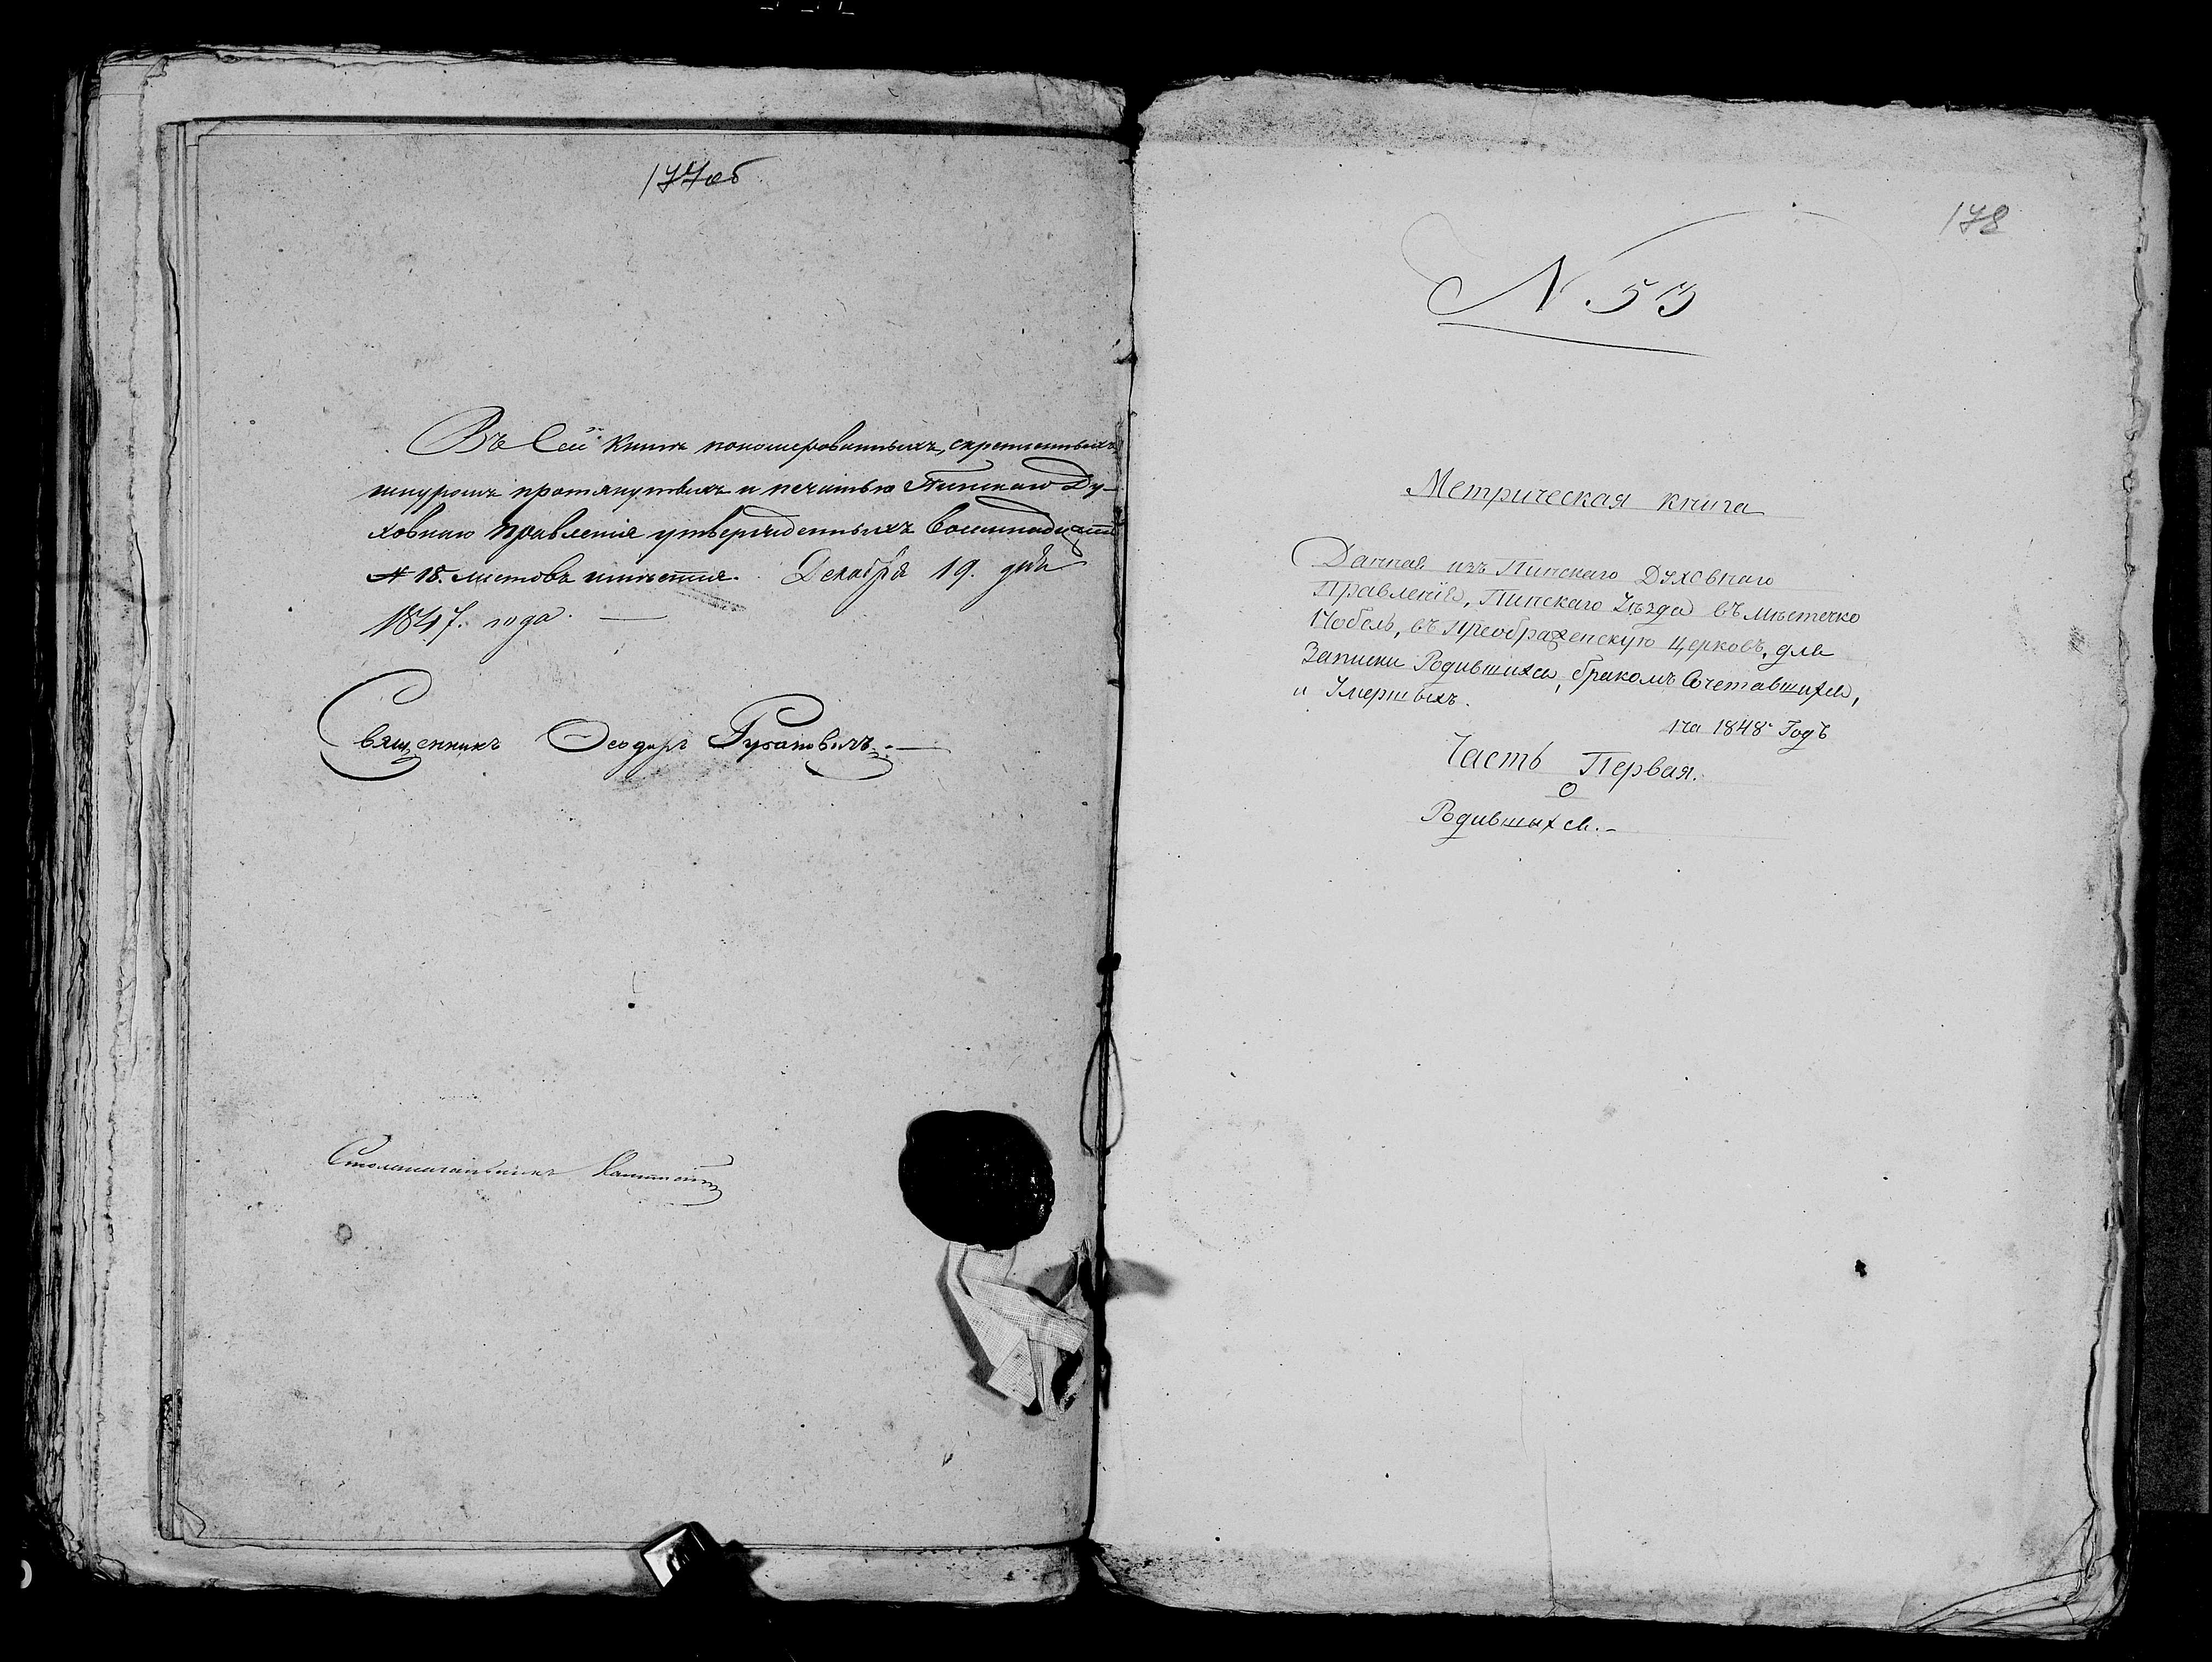 177об
Въ Сей книге пономерованныхъ, скрепленныхъ
шнуромъ протянутыхъ и печатью Пинскаго Ду-
ховнаго Правленія утвержденныхъ восемнадцать
№ 18. листовъ имѣется. Декабря 19. дня
1847. года.
Священникъ Ѳеодоръ
Столоначальникъ
178
N 53
Метрическая книга
Данная изъ Пинскаго Духовнаго
Правленія, Пинскаго Уѣзда въ мѣстечко
Нобель, въ Преображенскую Церковъ, для
Записки Родившихся, бракомъ Сочетавшихся,
и Умершыхъ.
на 1848 Годъ
Часть Первая.
О
Родившыхся.-